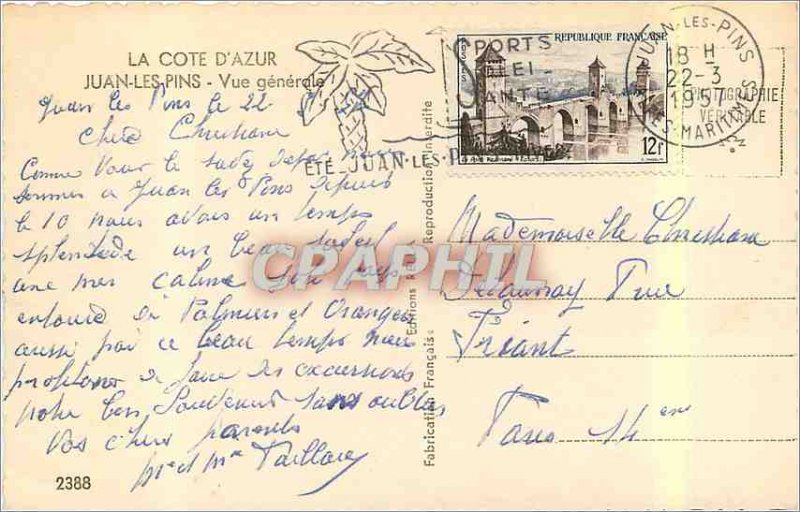 LA COTE D'AZUR
JUAN-LES-PINS - Vue générale
Juan les Pins le 22
Chère Christiane
Comme Vous le savez
sommes a Juan les Pins depuis
le 10 nous avons un temps
splendide un beau soleil
une mer calme
entouré de Palmiers et Orangers
aussi par ce beau temps nous
profitons de faire des excursions
notre bon Souvenir sans oublier
Vos chers parents
Mr et Mme
2388
Fabrication Française
Editions
Reproduction Interdite
CPRAPHIL
SPORTS
PLEI
SANTE
ÉTÉ JUAN-LES-P
REPUBLIQUE FRANÇAISE
POSTES
12F
JUAN-LES-PINS
18 H
22-3
195
ALPES-MARITIMES
PHOTOGRAPHIE
VERITABLE
Mademoiselle Christiane
Delaunay Rue
Friant
Paris 14 eme